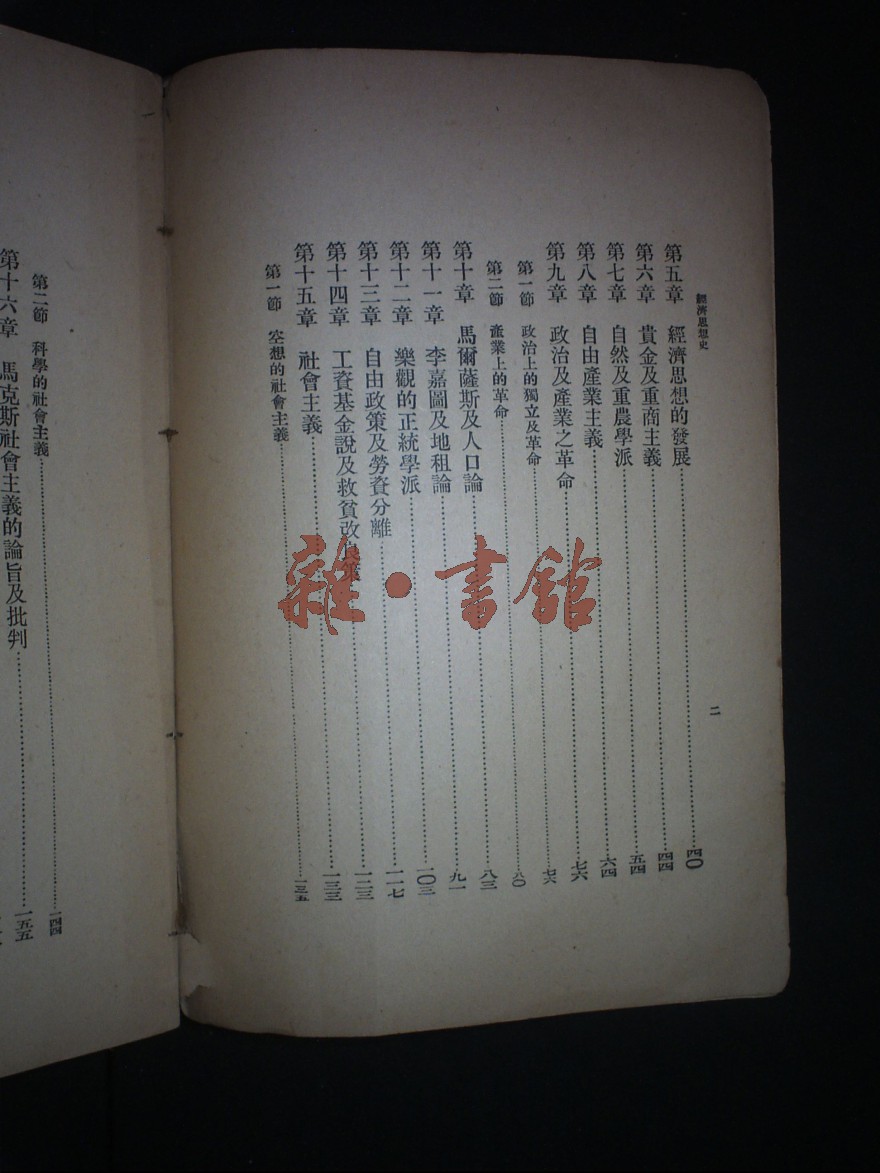 經濟思想史
二
第五章 經濟思想的發展…………四〇
第六章 貴金及重商主義…………四四
第七章 自然及重農學派…………五四
第八章 自由產業主義…………六四
第九章 政治及產業之革命…………七六
第一節 政治上的獨立及革命…………七六
第二節 產業上的革命…………八〇
第十章 馬爾薩斯及人口論…………八三
第十一章 李嘉圖及地租論…………九一
第十二章 樂觀的正統學派…………一〇三
第十三章 自由政策及勞資分離…………一一七
第十四章 工資基金說及救貧改良策…………一二三
第十五章 社會主義…………一三三
第一節 空想的社會主義…………一三五
第二節 科學的社會主義…………一四四
第十六章 馬克斯社會主義的論旨及批判…………一五五
雜·書館